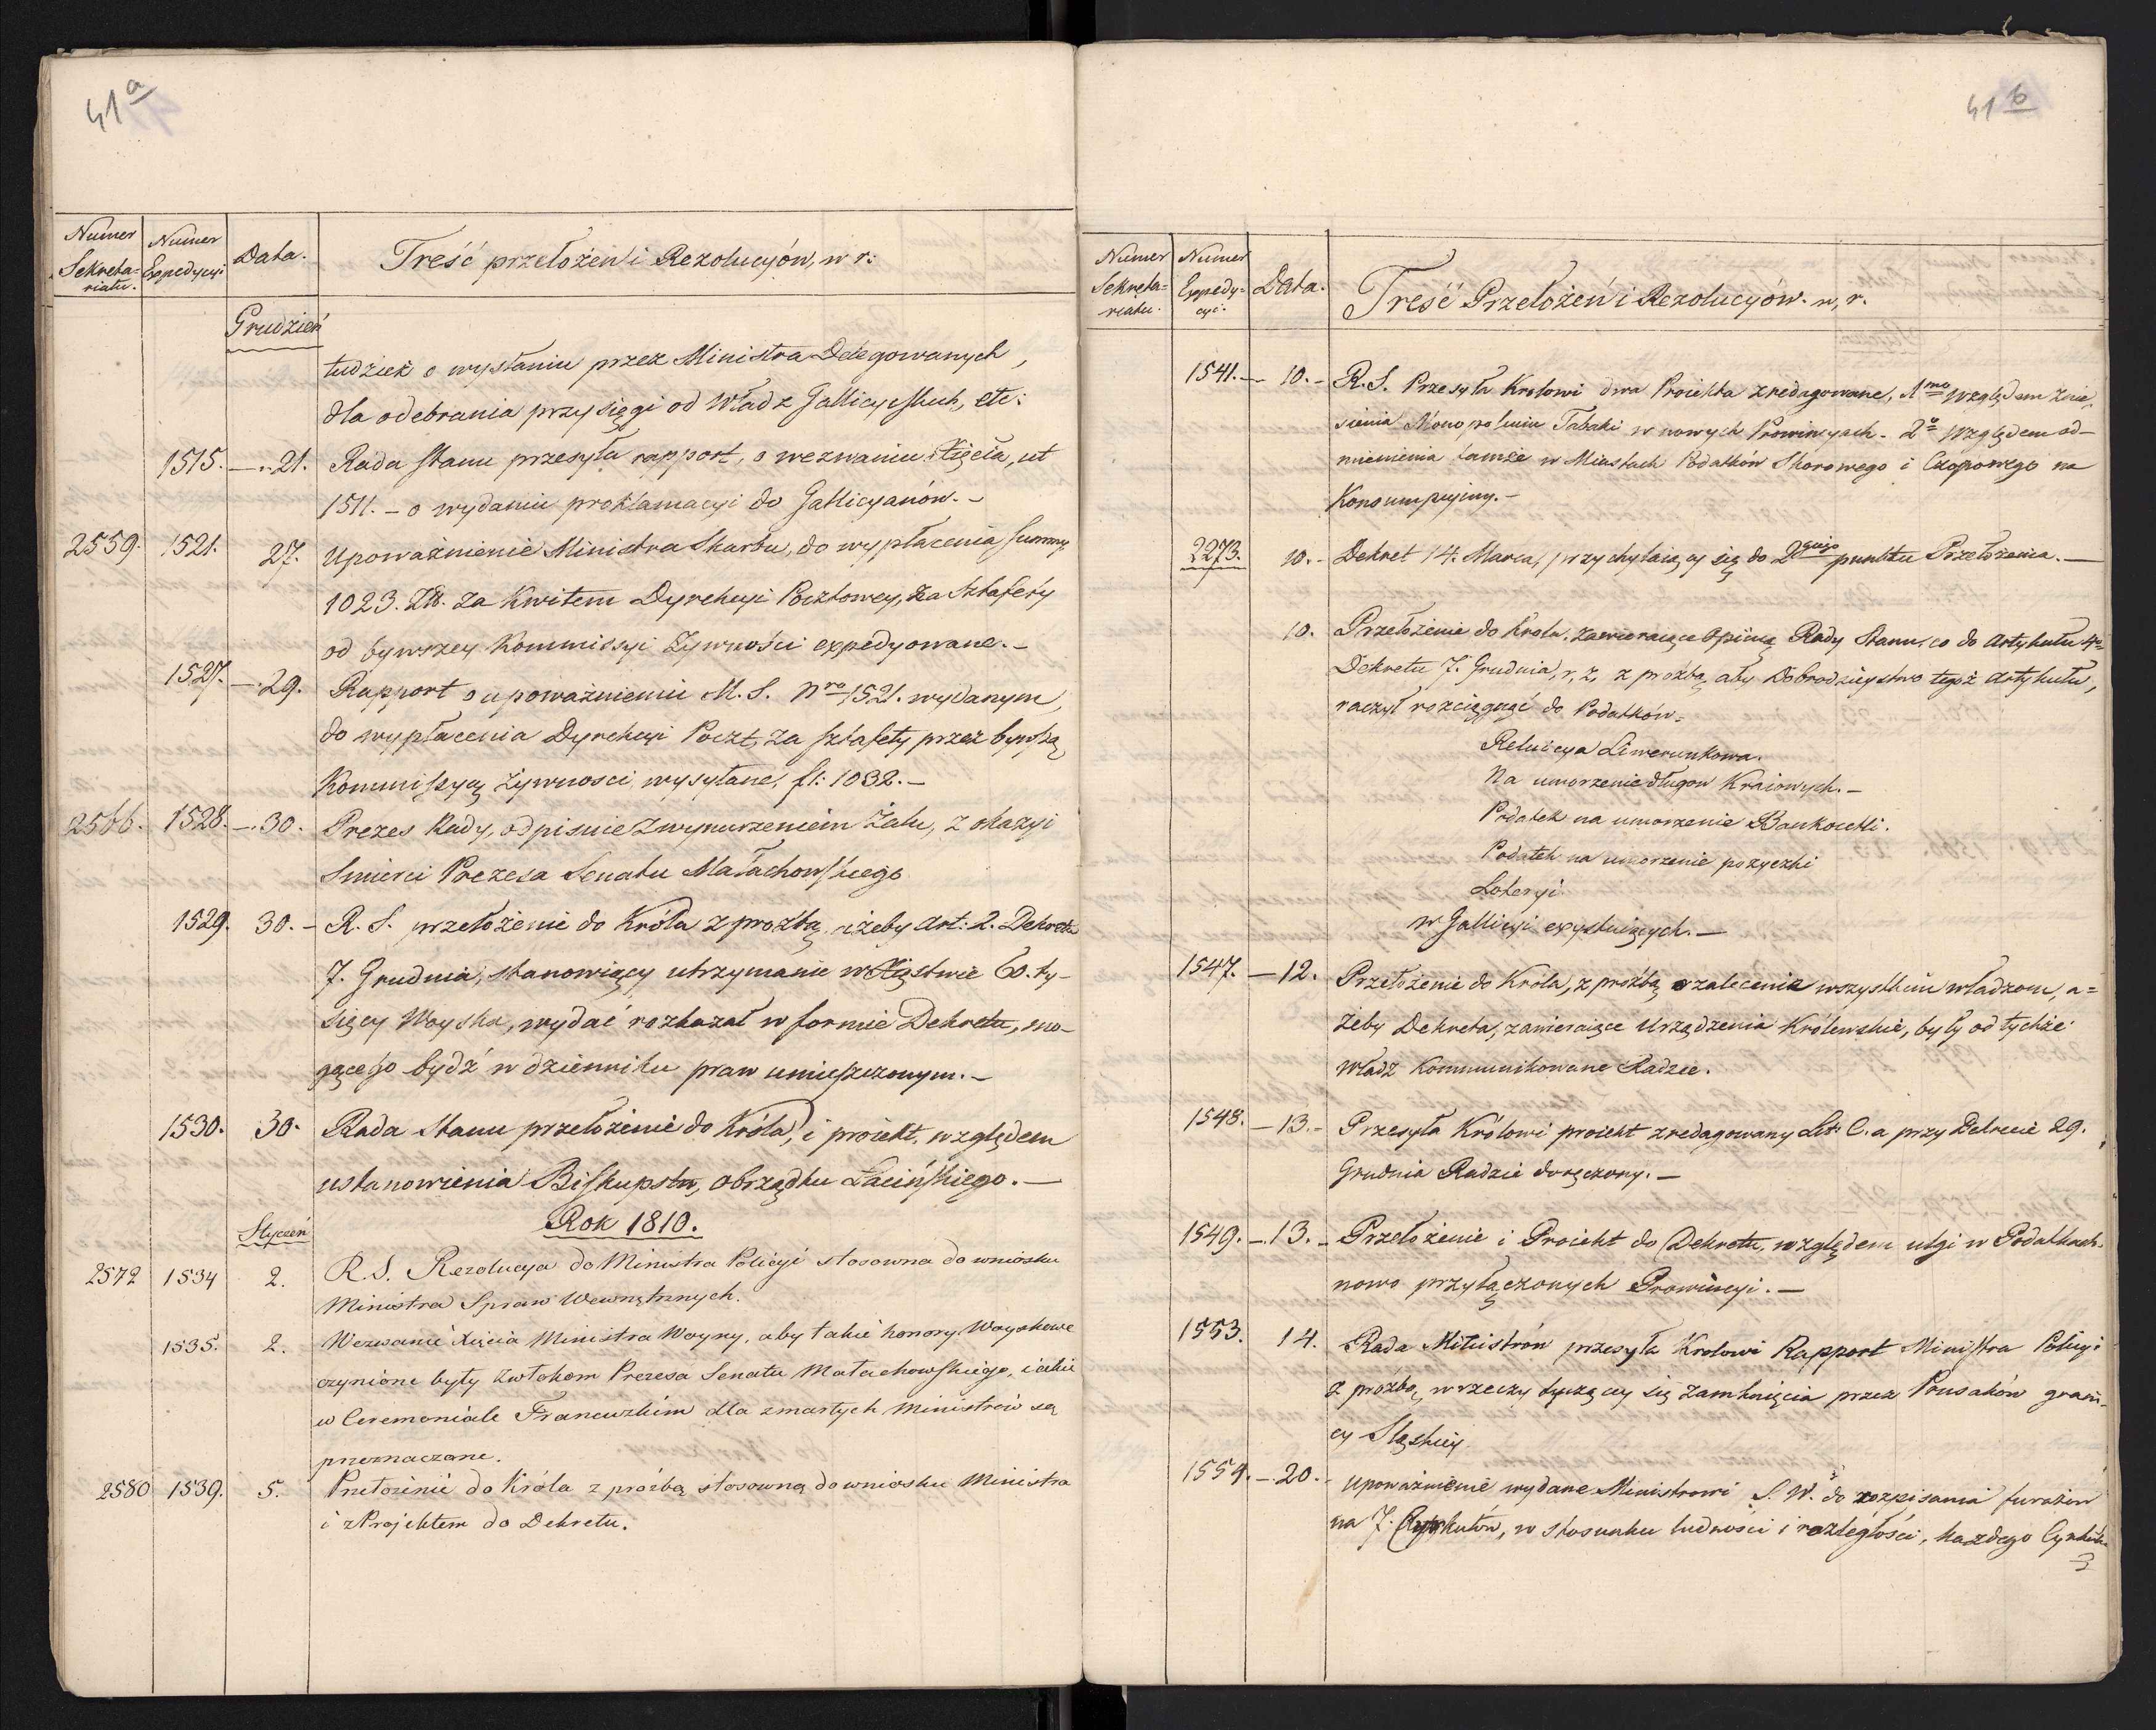 41a
Numer Sekreta=riatu. Numer Expedycyi Data. Treść przełożeń i Rezolucyów, w r:
Grudzień
tudzież o wysłaniu przez Ministra Delegowanych,
dla odebrania przysięgi od Władz Gallicyiskich, etc:
1515. — 21. Rada Stanu przesyła rapport, o wezwaniu Xięcia, ut
1511. – o wydaniu proklamacyi do Gallicyanów. –
2559. 1521. 27. Upoważnienie Ministra Skarbu, do wypłacenia Summy
1023. Zł. za Kwitem Dyrekcyi Pocztowey, za Sztafety
od bywszey Kommissyi Żywności expedyowane. –
1527. — 29. Rapport o upoważnieniu M. S. Nro 1521. wydanym,
do wypłacenia Dyrekcyi Poczt, za sztafety przez bywszą
Kommissyą Żywnosci wysyłane, fl: 1032. –
2566. 1528. — 30. Prezes Rady, odpisuie z wynurzeniem Żalu, z okazyi
Smierci Prezesa Senatu Małachowskiego
1529. 30. – R. S. przełożenie do Króla z prozbą ażeby Art: 2. Dekretu
7. Grudnia, stanowiący utrzymanie w Xięstwie 60. ty-
sięcy Woyska, wydać rozkazał w formie Dekretu, mo-
gącego bydź w dzienniku praw umieszczonym. –
1530. 30. Rada Stanu przełożenie do Króla, i proiekt, względem
ustanowienia Biskupstw, obrządku Łacińskiego. —
Rok 1810.
Styczeń
2572 1534 2. R. S. Rezolucya do Ministra Policyi stosowna do wniosku
Ministra Spraw Wewnętrznych.
1535. 2. Wezwanie Xięcia Ministra Woyny, aby takie honory Woyskowe
czynione były zwłokom Prezesa Senatu Małachowskiego, iakie
w Ceremoniale Francuzkim dla zmarłych Ministrów są
przeznaczone.
2580 1539. 5. Przełożenie do Króla z prośbą stosowną do wniosku Ministra
i z Projektem do Dekretu.
41 b
Numer Sekreta=riatu. Numer Expedy=cyi. Data. Treść Przełożeń i Rezolucyów. w, r.
1541. — 10. – R. S. Przesyła Krolowi dwa Proiekta zredagowane, 1mo Względem Znie-
sienia Monopolium Tabaki w nowych Prowincyach – 2o Względem od-
mienienia tamże w Miastach Podatków Skorowego i Czopowego na
Konsumpcyiny. –
2273. 10. – Dekret 14. Marca, przychylaiący się do 2giego punktu Przełożenia. —
10. Przełożenie do Krola, zawieraiące Opinią Rady Stanu, co do Artykułu 4o
Dekretu 7. Grudnia, r, z, z prozbą, aby Dobrodzieystwo tegoż Artykułu,
raczył rozciągnąć do Podatków =
Reluicya Liwerunkowa.
Na umorzenie długow Kraiowych. –
Podatek na umorzenie Bankocetli.
Podatek na umorzenie pozyczki
Loteryi
w Gallicyi exystuiących. —
1547. — 12. Przełożenie do Króla, z prośbą o zalecenie wszystkim władzom, a=
żeby Dekreta, zawieraiące Urządzenia Królewskie, były od tychże
Władz Kommunikowane Radzie.
1548. — 13. – Przesyła Królowi proiekt zredagowany Lit: C. a przy Dekrecie 29.
Grudnia Radzie doręczony. —
1549. — 13. – Przełożenie i Proiekt do Dekretu, względem ulgi w Podatkach
nowo przyłączonych Prowincyi. —
1553. 14. Rada Ministrów przesyła Krolowi Rapport Ministra Policyi
z prozbą, w rzeczy tyczącey się zamknięcia przez Prusaków grani-
cy Sląskiey.
1554. — 20. – Upoważnienie wydane Ministrowi S. W. do rozpisania furażów
na 7. Cyrkułów, w stosunku ludności i rozległości, każdego Cyrkułu